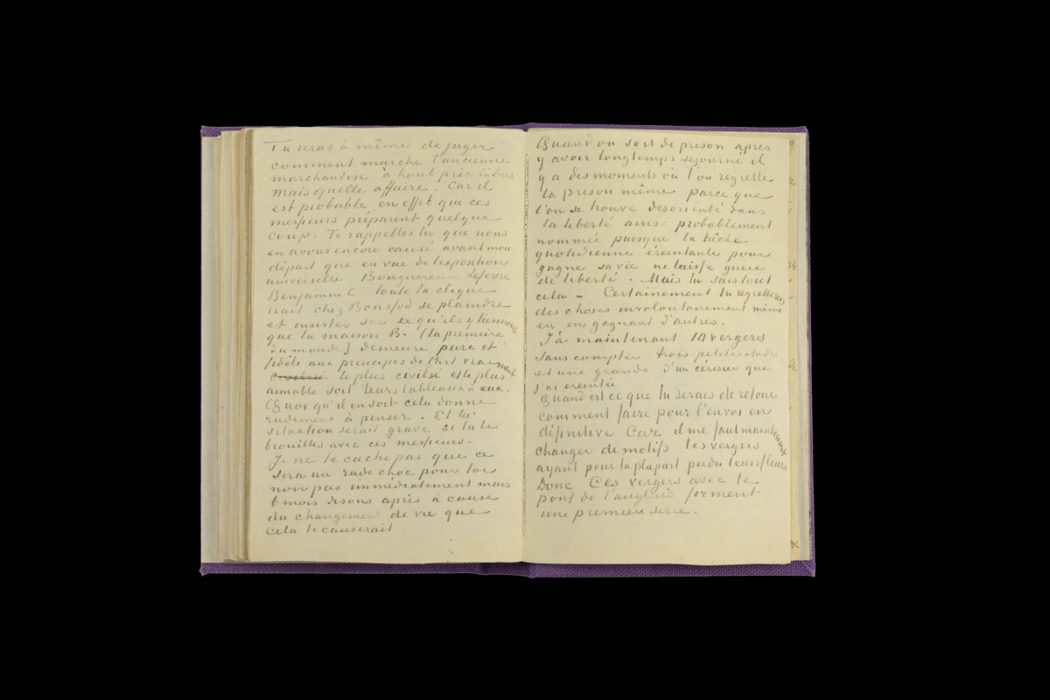 Tu seras à même de juger
comment marche l'ancienne
marchandise à haut prix là bas
mais quelle affaire. Car il
est probable en effet que ces
messieurs préparent quelque
coup. Te rappelles tu que nous
en avons encore causé avant mon
départ que en vue de l'exposition
universelle Bouguereau Lefevre
Benjamin C toute la clique
irait chez Boussod se plaindre
et insister sur ce qu'ils y tiennent
que la maison B. (la première
du monde) demeure pure et
fidèle aux principes de l'art vraiment
le plus civilisé et le plus
aimable soit leurs tableaux à eux.
Quoi qu'il en soit cela donne
rudement à penser. Et la
situation serait grave si tu te
brouilles avec ces messieurs.
Je ne te cache pas que ce
sera un rude choc pour toi
non pas immédiatement mais
6 mois disons après à cause
du changement de vie que
cela te causerait.
Quand on sort de prison après
y avoir longtemps sejourné il
y a des moments où l'on regrette
la prison même parce que
l'on se trouve desorienté dans
la liberté ainsi probablement
nommée puisque la tâche
quotidienne éreintante pour
gagne sa vie ne laisse guere
de liberté. Mais tu sais tout
cela – Certainement tu regretteras
des choses involontairement même
en en gagnant d'autres.
J'ai maintenant 10 vergers
sans compter trois petites etudes
et une grande d'un cérisier que
j'ai ereintée
Quand est ce que tu serais de retour
comment faire pour l'envoi en
définitive Car il me faut maintenant
changer de motifs les vergers
ayant pour la plupart perdu leurs fleurs
Donc Ces vergers avec le
pont de l'anglais forment
une première serie.